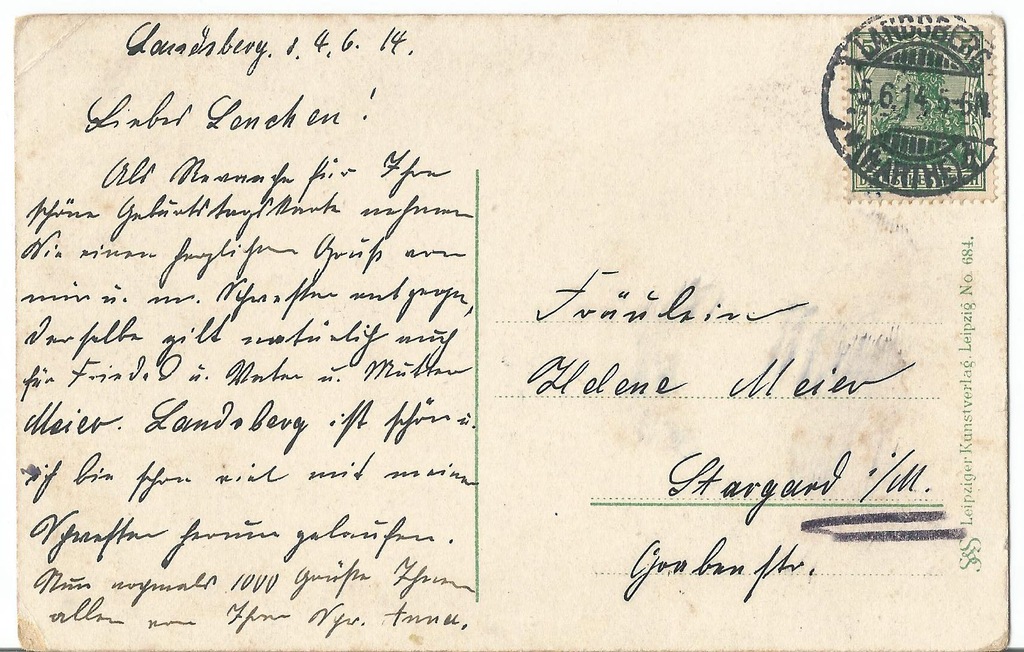 Landsberg, d. 4.6.14.
Liebes Lenchen!
Als Revanche für Ihre
schöne Geburtstagskarte nehmen
Sie einen herzlichen Gruß von
mir u. m. Schwester entgegen,
derselbe gilt natürlich auch
für Frieda u. Vater u. Mutter
Meier. Landsberg ist schön u.
ich bin schon viel mit meiner
Schwester herum gelaufen.
Nun nochmals 1000 Grüße Ihnen
allen von Ihrer Anna.
LANDSBERG
5.6.14.5-6N
(WARTHE)
Fräulein
Helene Meier
Stargard i/M.
Grabenstr.
Leipziger Kunstverlag, Leipzig No. 684.